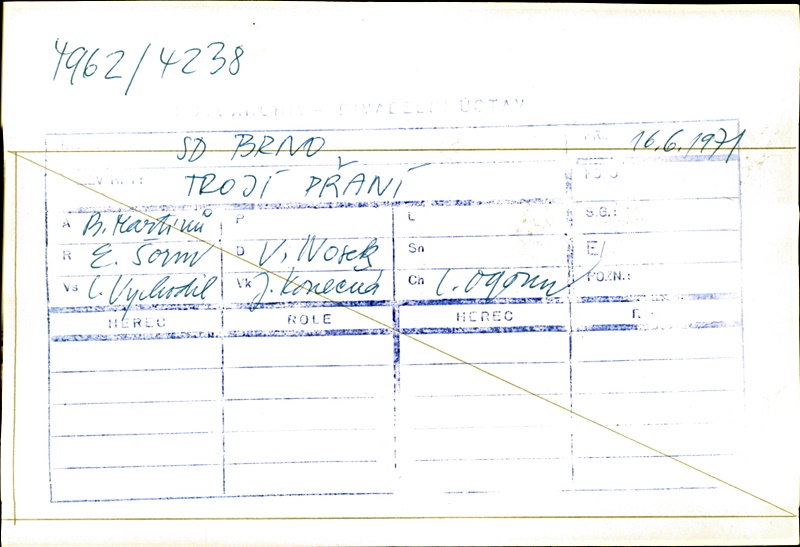 4962/4238
DIVADELNÍ ÚSTAV
SD BRNO 16.6.1971
TROJÍ PŘÁNÍ
A B. Martinů P L S.G.:
R E. Šorm D V. Nosek Sn E/
Vs L. Vychodil Vk J. Konečná Ch POZN.:
HEREC ROLE HEREC R